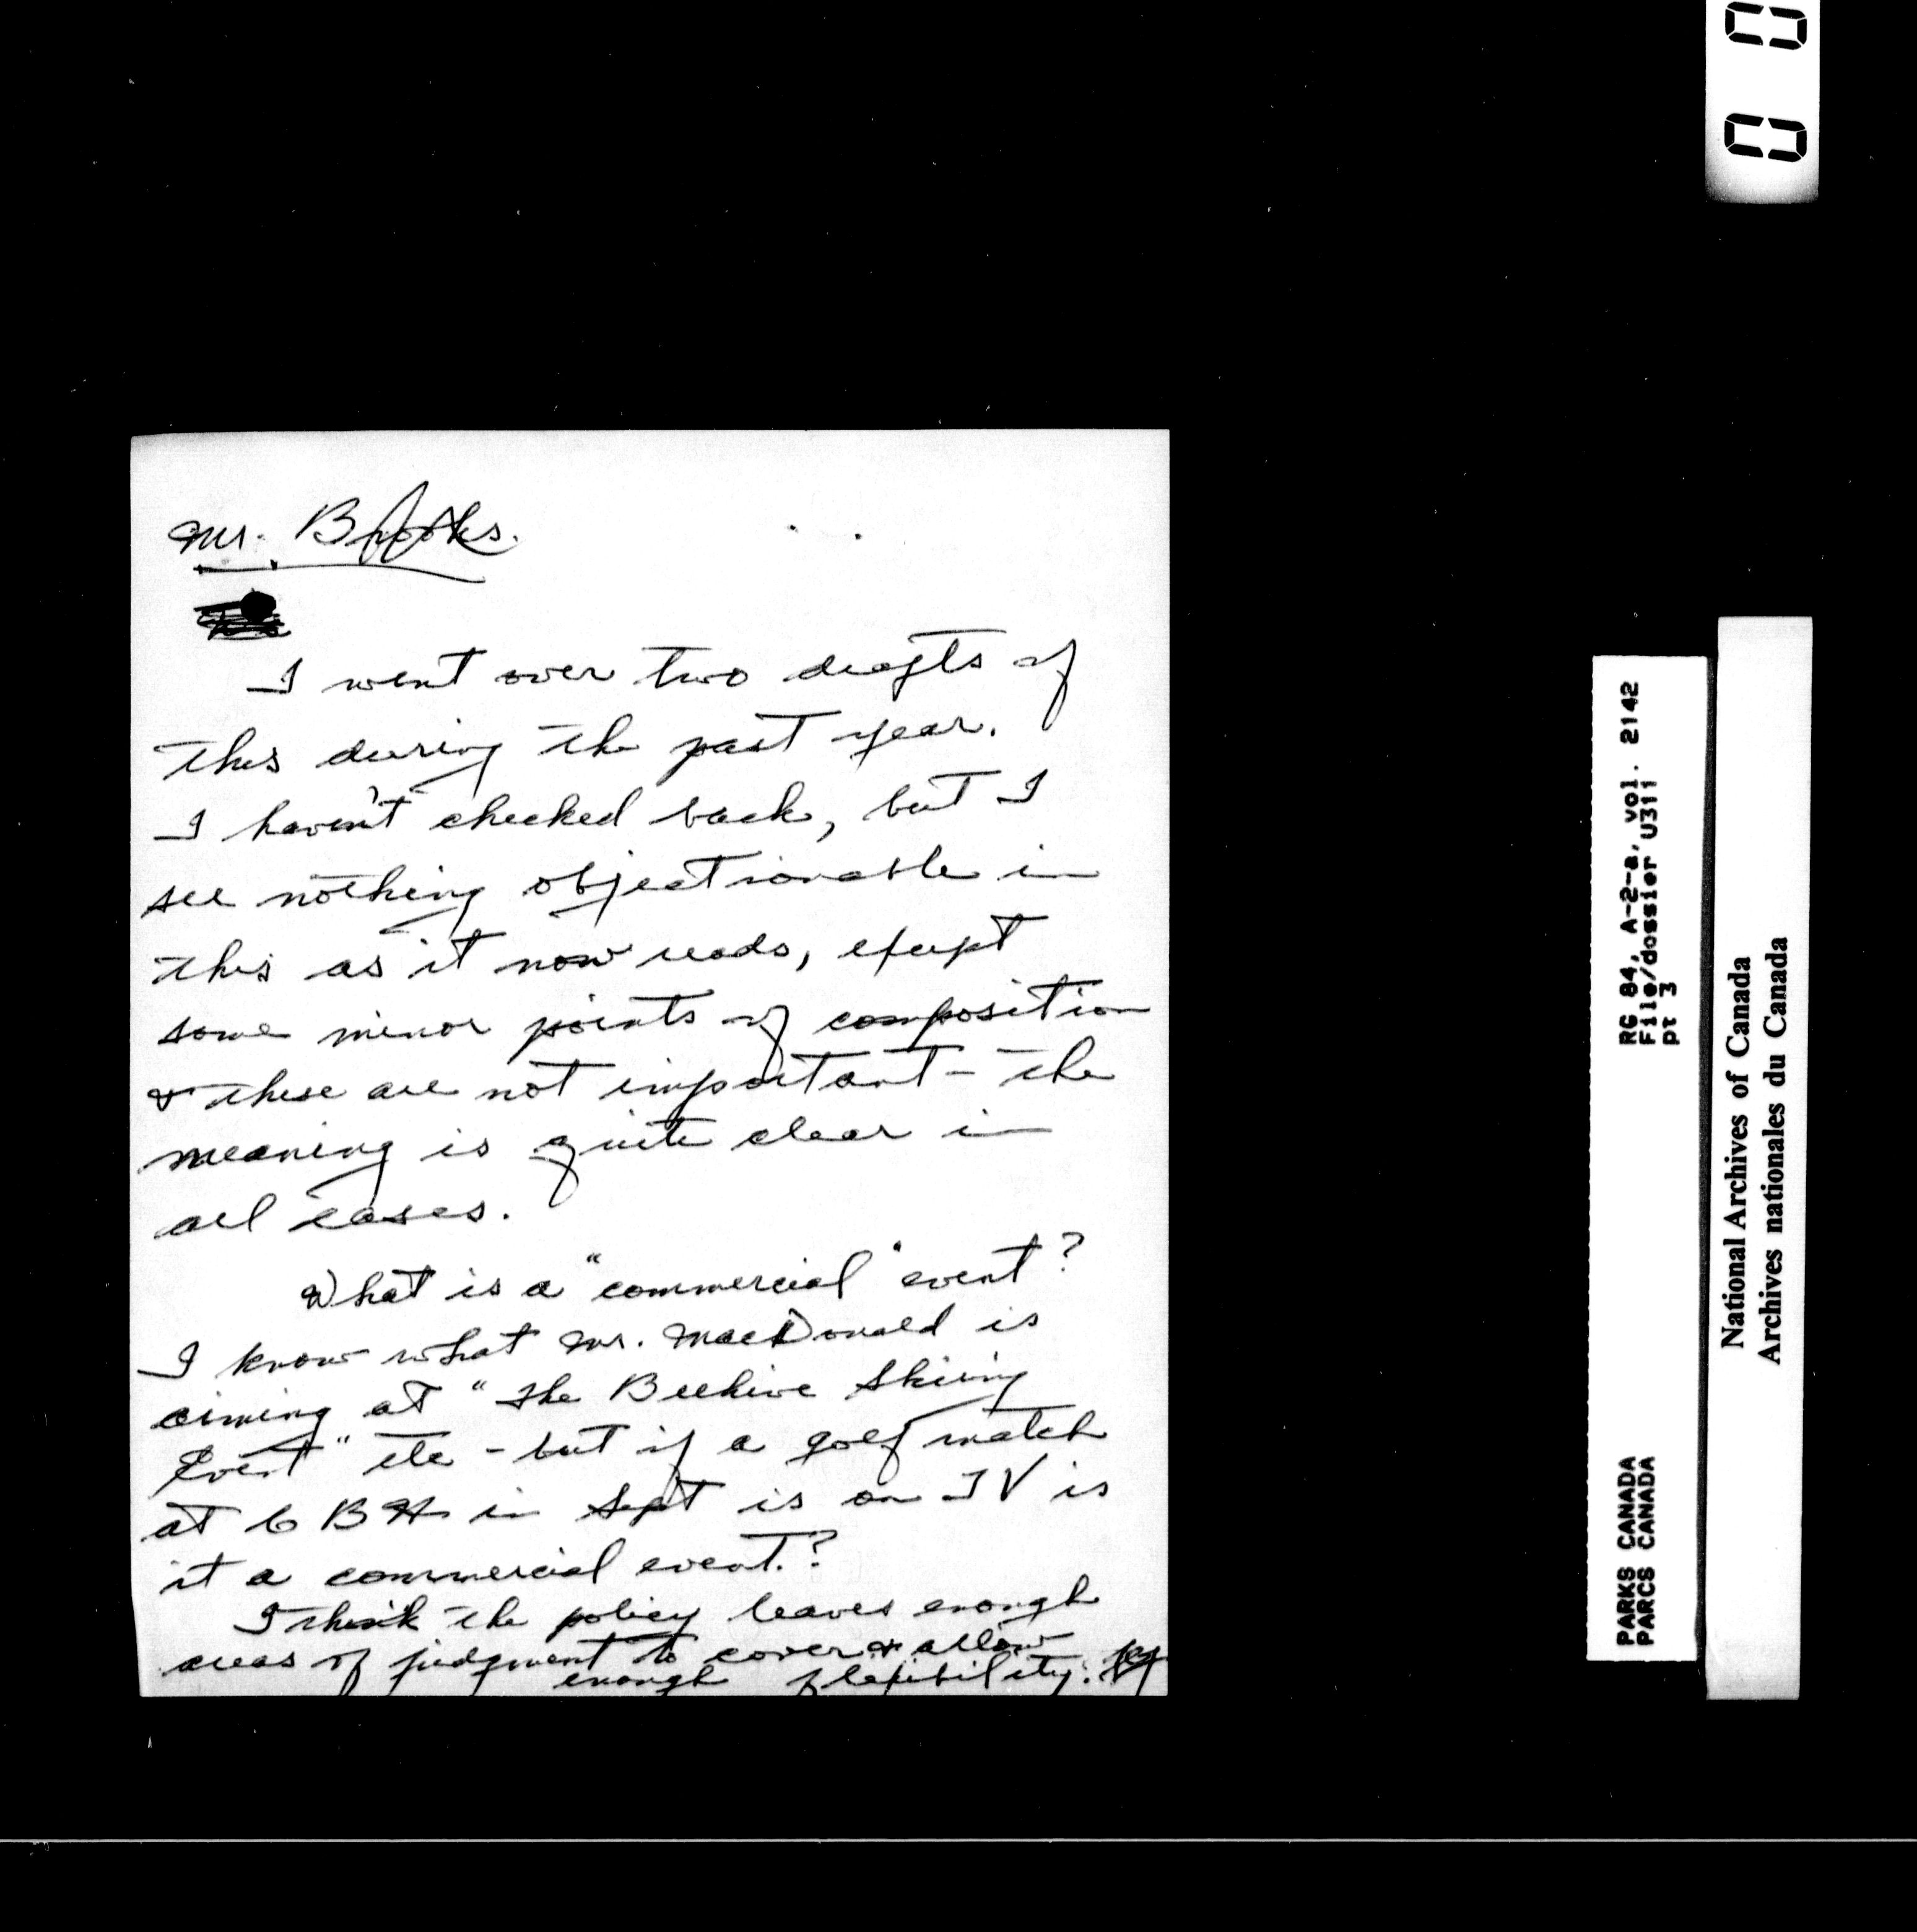 Mr. Brooks.
I went over two drafts of
this during the past year.
I haven't checked back, but I
see nothing objectionable in
this as it now reads, except
some minor points of composition
& these are not important - the
meaning is quite clear in
all cases.
What is a "commercial" event?
I know what Mr. MacDonald is
aiming at "The Beehive Skiing
Event" etc - but if a golf match
at CBH in Sept is on TV is
it a commercial event.?
I think the policy leaves enough
areas of judgment to cover & allow
enough flexibility.
0 0
RG 84, A-2-a, vol. 2142
File/dossier U311
pt 3
PARKS CANADA
PARCS CANADA
National Archives of Canada
Archives nationales du Canada